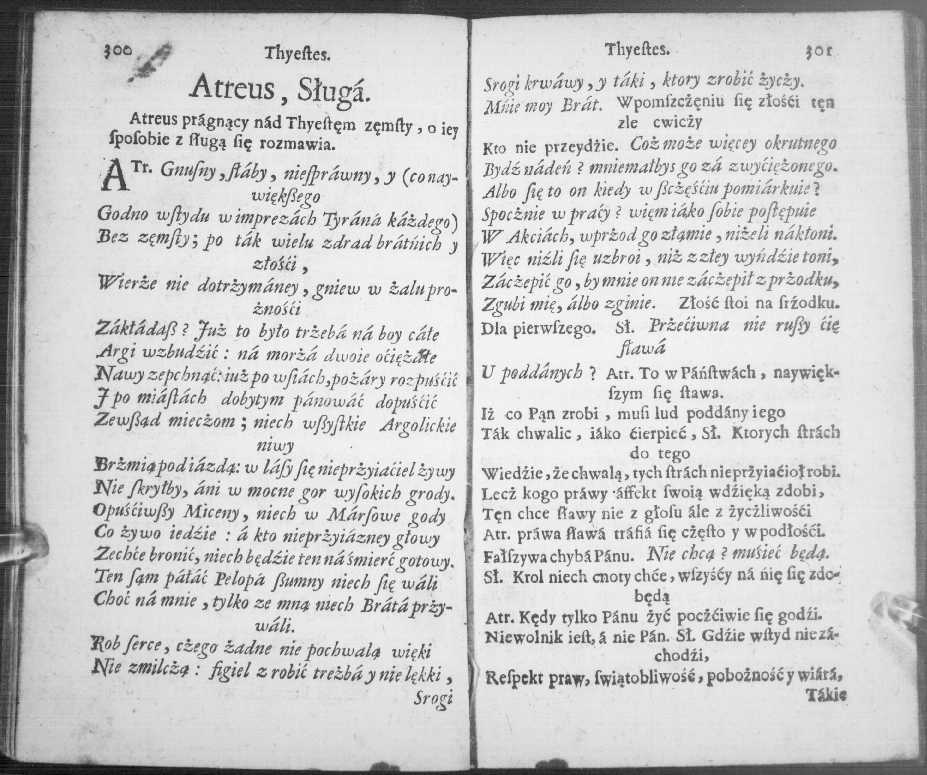 300
Thyeſtes.
Atreus, Sługá.
Atreus prágnący nád Thyeſtęm zęmſty, o iey
ſpoſobie z ſługą ſię rozmawia.
ATr. Gnuſny, ſłáby, nieſpráwny, y (co nay-
większego
Godno wſtydu w imprezách Tyráná káżdego)
Bez zęmſty; po ták wielu zdrad brátńich y
złośći,
Wierże nie dotrżymáney, gniew w żalu pro-
żnośći
Zákłádaß? Już to było trżebá ná boy cáłe
Argi wzbudźić: ná morżá dwoie oćiężáłe
Nawy zepchnąć: iuż po wśiách, pożáry rozpuśćić
J po miáſtách dobytym pánowáć dopuśćić
Zewßąd mieczom; niech wßyſtkie Argolickie
niwy
Brżmią pod iázdą: w láſy ſię nieprżyiaćiel żywy
Nie ſkryłby, áni w mocne gor wyſokich grody.
Opuśćiwßy Miceny, niech w Márſowe gody
Co żywo iedźie: á kto nieprżyiázney głowy
Zechće bronić, niech będźie ten ná śmierć gotowy.
Ten ſąm páłáć Pelopa ßumny niech ſię wáli
Choć ná mnie, tylko ze mną niech Brátá prży-
wáli.
Rob ſerce, cżego żadne nie pochwalą więki
Nie zmilcżą: figiel z robić treżbá y nie lękki,
Srogi
Thyeſtes.
301
Srogi krwáwy, y táki, ktory zrobić życży.
Mńie moy Brát. Wpomſzcżęniu ſię złośći tęn
zle cwicży
Kto nie przeydźie. Coż może więcey okrutnego
Bydź nádeń? mniemałbys go zá zwyćiężonego.
Albo ſię to on kiedy w ßcżęśćiu pomiárkuie?
Spocżnie w praćy? więm iáko ſobie poſtępuie
W Akciách, wprżod go złąmie, niżeli nákłoni.
Więc niźli ſię uzbroi, niż z złey wyńdźie toni,
Záczepić go, by mnie on nie záczepił z prżodku,
Zgubi mię, álbo zginie. Złość ſtoi na śrżodku.
Dla pierwſzego. Sł. Przećiwna nie rußy ćię
ſławá
U poddánych? Atr. To w Páńſtwách, naywięk-
ſzym ſię ſtawa.
Iż co Pąn zrobi, muſi lud poddány iego
Ták chwalic, iáko ćierpieć, Sł. Ktorych ſtrách
do tego
Wiedźie, że chwalą, tych ſtrách nieprżyiaćioł robi.
Lecż kogo práwy áffekt ſwoią wdźięką zdobi,
Tęn chce ſławy nie z głoſu ále z życżliwośći
Atr. práwa ſławá tráfiá ſię cżęſto y w podłośći.
Fałſzywa chybá Pánu. Nie chcą? muśieć będą.
Sł. Krol niech cnoty chće, wſzyśćy ná ńię ſię zdo-
będą
Atr. Kędy tylko Pánu żyć pocżćiwie ſię godźi.
Niewolnik ieſt, á nie Pán. Sł. Gdźie wſtyd nie zá-
chodźi,
Reſpekt praw, ſwiątobliwość, pobożność y wiárá,
Tákie